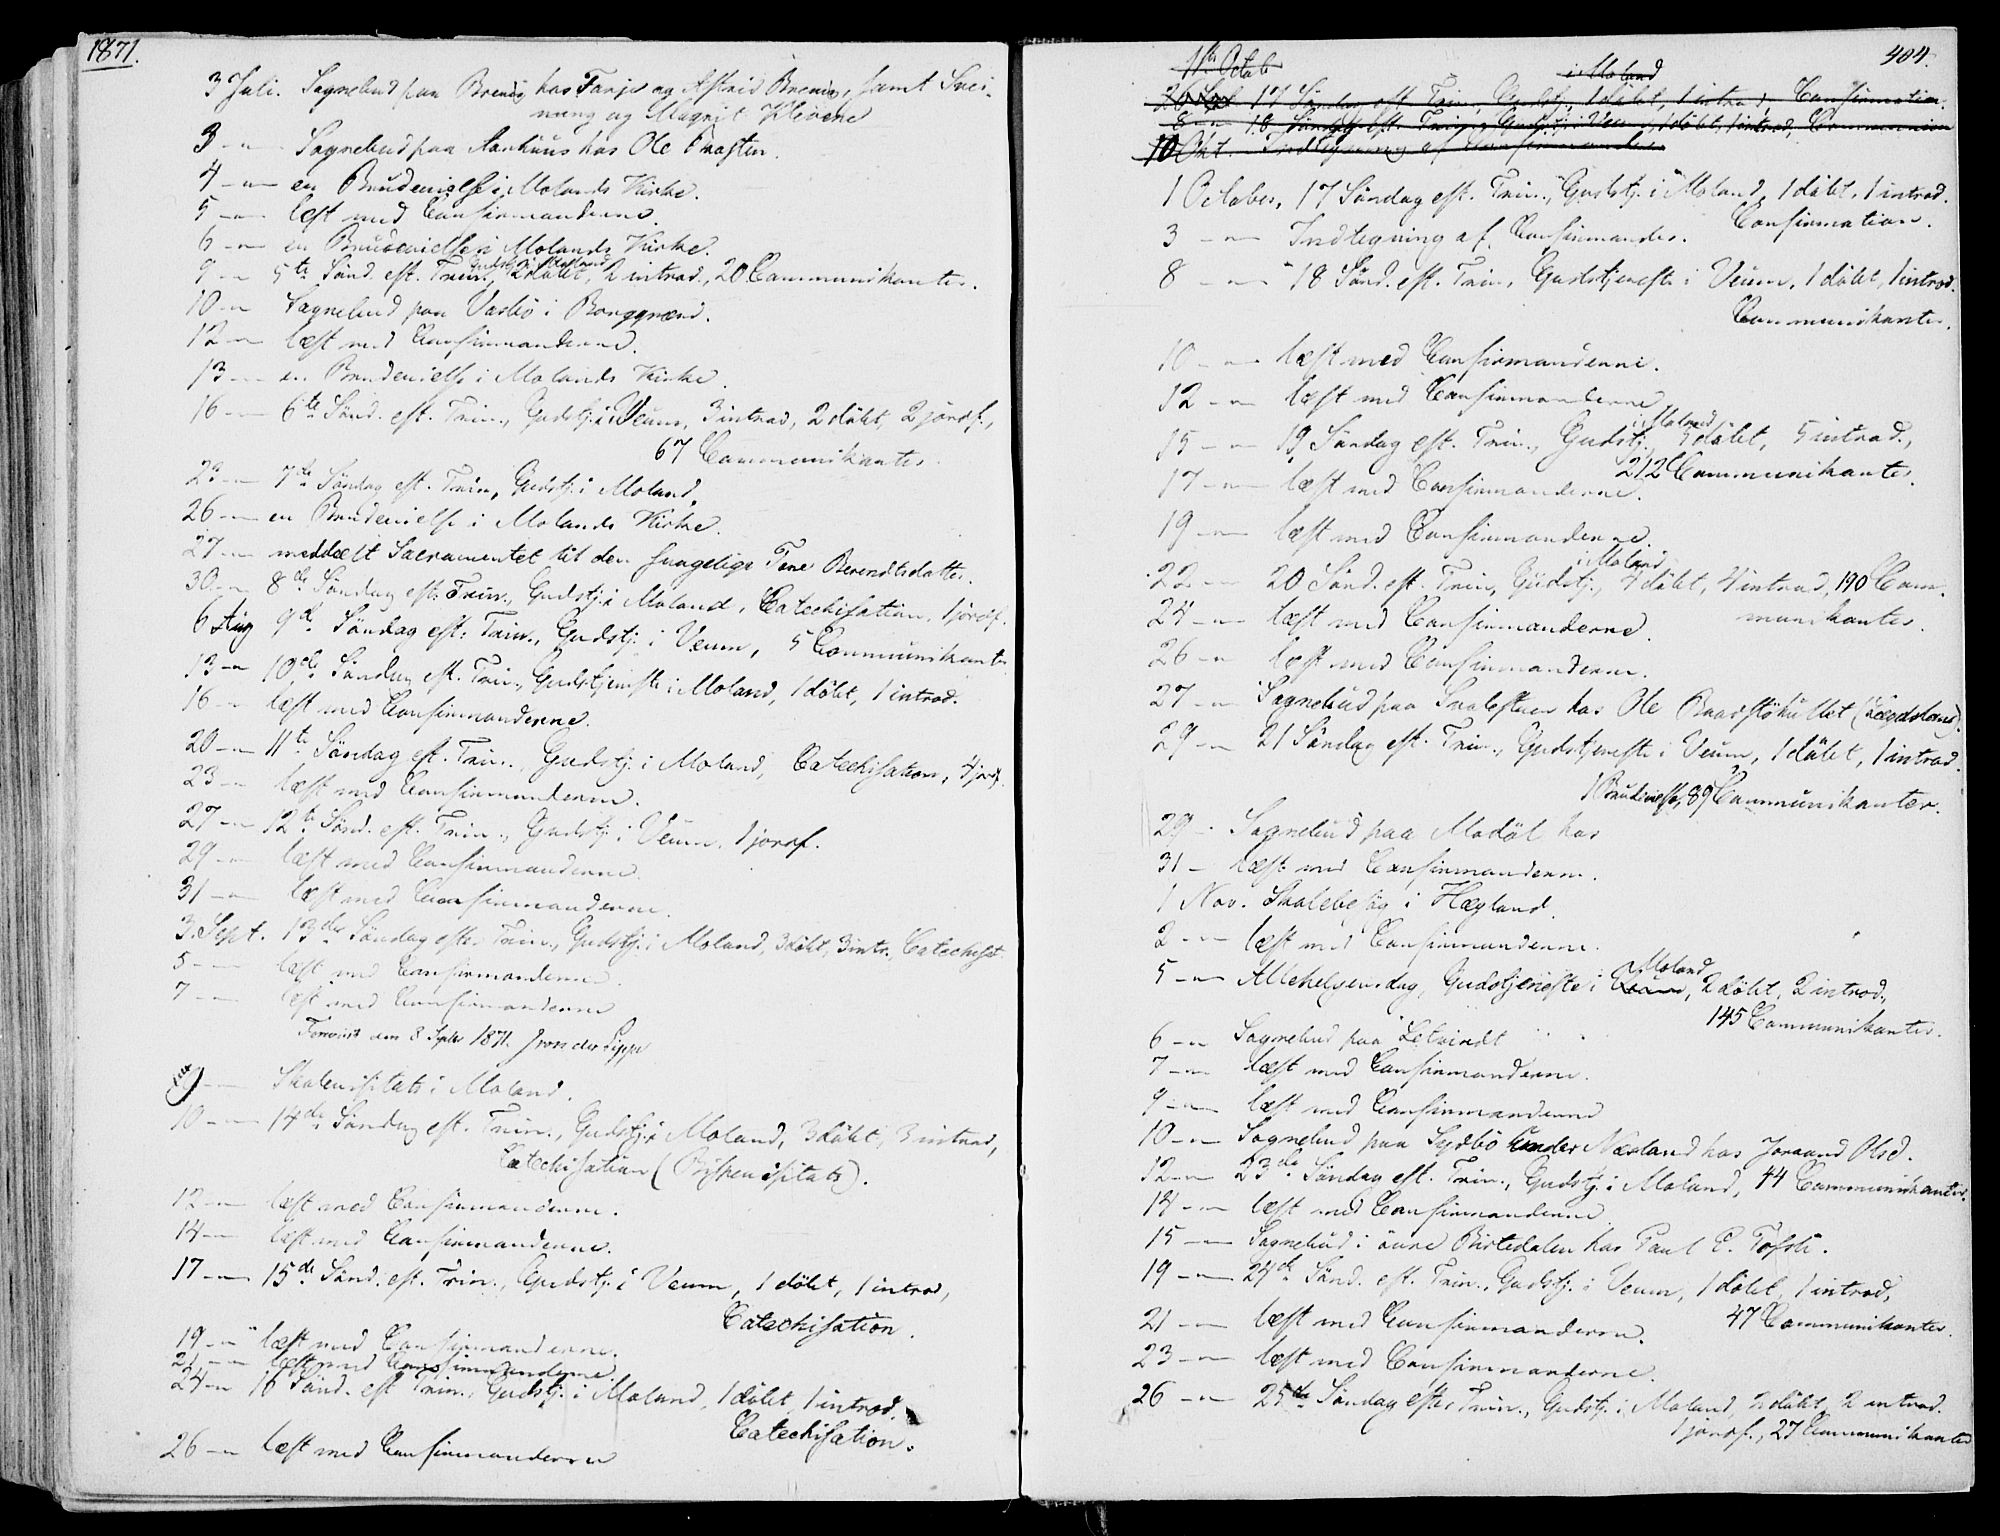 1871.
3 Juli. Sognebud paa Brenis hos Tarje og Astrid Brenis, samt Svei-
nung og Magnit Klivene
3 -"- Sognebud paa Aarhuus hos Ole
4 -"- en Brudevielse i Molands Kirke.
5 -"- læst med Confirmanderne.
6 -"- en Brudevielse i Molands Kirke.
9 -"- 5te Sönd. eft. Trin., Gudstj. i Moland, 2 döbt, 2 introd., 20 Communikanter.
10 -"- Sognebud paa Vasbö i Borggrænd.
12 -"- læst med Confirmanderne.
13 -"- en Brudevielse i Molands Kirke.
16 -"- 6te Sönd. eft. Trin., Gudstj. i Veum, 3 introd, 2 döbt, 2 jordf.,
67 Communikanter
23 -"- 7de Söndag eft. Trin, Gudstj. i Moland.
26 -"- en Brudevielse i Molands Kirke.
27 -"- meddeelt Sacramentet til den sengelige Tone Berendtsdatter.
30 -"- 8de Söndag eft. Trin., Gudstj. i Moland, Catechisation, 1 jordf.
6 Aug 9de Söndag eft. Trin., Gudstj. i Veum, 5 Communikanter
13 -"- 10de Söndag eft. Trin., Gudstjeneste i Moland, 1 döbt, 1 introd.
16 -"- læst med Confirmanderne.
20 -"- 11te Söndag eft. Trin., Gudstj. i Moland, Catechisation, 4 jordf.
23 -"- læst med Confirmanderne.
27 -"- 12te Sönd. eft. Trin., Gudstj. i Veum, 1 jordf.
29 -"- læst med Confirmanderne.
31 -"- læst med Confirmanderne.
3. Sept. 13de Söndag efter Trin., Gudstj. i Moland, 3 döbt, 3 intr., Catechisat.
5 -"- læst med Confirmanderne.
7 -"- læst med Confirmanderne
Forevist den 8 Septbr 1871. J von der Lippe
9 -"- Skolevisitats i Moland.
10 -"- 14de Söndag eft. Trin., Gudstj. i Moland, 3 döbt, 3 introd,
Catechisation (Bispevisitats).
12 -"- læst med Confirmanderne.
14 -"- læst med Confirmanderne.
17 -"- 15de Sönd. eft. Trin., Gudstj. i Veum, 1 döbt, 1 introd,
Catechisation.
19 -"- læst med Confirmanderne.
21 -"- læst med Confirmanderne
24 -"- 16 Sönd. eft Trin., Gudstj. i Moland, 1 döbt, 1 introd.
Catechisation.
26 -"- læst med Confirmanderne
404.
1ste Octob
17 Söndag eft. Trin., Gudstj. i Moland, 1 döbt, 1 introd, Confirmation.
8 -"- 18 Söndag eft. Trin., Gudstj. i Veum, 1 döbt, 1 introd, Communion
10 Okt. Indtegning af Confirmander
1 October, 17 Söndag eft. Trin., Gudstj. i Moland, 1 döbt, 1 introd.
Confirmation.
3 -"- Indtegning af Confirmander.
8 -"- 18 Sönd. eft. Trin, Gudstjeneste i Veum, 1 döbt, 1 introd.
Communikanter.
10 -"- læst med Confirmanderne.
12 -"- læst med Confirmanderne
15 -"- 19 Söndag eft. Trin., Gudstj. i Moland, 5 döbt, 5 introd.,
212 Communikanter.
17 -"- læst med Confirmanderne.
19 -"- læst med Confirmanderne.
22 -"- 20 Sönd. eft. Trin, Gudstj. i Moland, 4 döbt, 4 introd, 190 Com-
munikanter.
24 -"- læst med Confirmanderne.
26 -"- læst med Confirmanderne.
27 -"- Sognebud paa hos Ole (Lægdslem).
29 -"- 21 Söndag eft. Trin., Gudstjeneste i Veum, 1 döbt, 1 introd.
1 Brudevielse, 89 Communikanter.
29 - Sognebud paa Modöl hos
31 - læst med Confirmanderne.
1 Nov. Skolebesög i Hægland.
2 -"- læst med Confirmanderne.
5 -"- Allehelgensdag, Gudstjeneste i Veum Moland, 2 döbt, 2 introd.,
145 Communikanter.
6 -"- Sognebud paa Letvindt
7 -"- læst med Confirmanderne.
9 -"- læst med Confirmanderne
10 -"- Sognebud paa Sydbö under Næsland hos Joraand Olsd.
12 -"- 23de Söndag eft. Trin., Gudstj. i Moland, 44 Communikanter.
14 -"- læst med Confirmanderne
15 -"- Sognebud i övre Birtedalen hos Paul E. Tofsli.
19 -"- 24de Sönd. eft. Trin., Gudstj. i Veum, 1 döbt, 1 introd,
47 Communikanter.
21 -"- læst med Confirmanderne.
23 -"- læst med Confirmanderne.
26 -"- 25de Söndag efter Trin., Gudstj. i Moland, 2 döbt, 2 introd.
1 jordf., 27 Communikanter